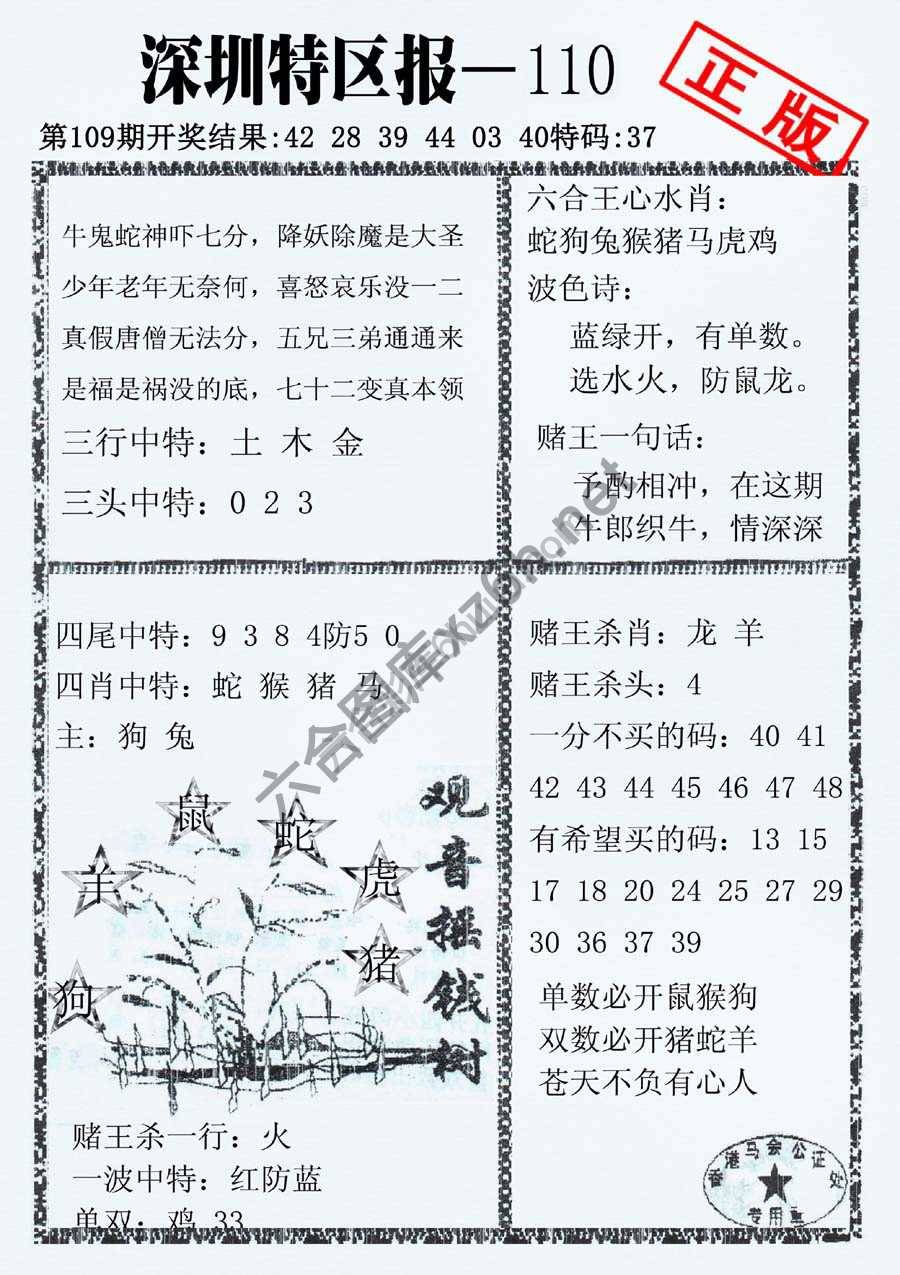 深圳特区报—110
正版
第109期开奖结果:42 28 39 44 03 40特码:37
牛鬼蛇神吓七分，降妖除魔是大圣
少年老年无奈何，喜怒哀乐没一二
真假唐僧无法分，五兄三弟通通来
是福是祸没的底，七十二变真本领
三行中特：土 木 金
三头中特：0 2 3
六合王心水肖：
蛇狗兔猴猪马虎鸡
波色诗：
蓝绿开，有单数。
选水火，防鼠龙。
赌王一句话：
予酌相冲，在这期
牛郎织牛，情深深
四尾中特：9 3 8 4防5 0
四肖中特：蛇 猴 猪 马
主：狗 兔
鼠
蛇
羊
虎
猪
狗
观音摇钱树
赌王杀一行：火
一波中特：红防蓝
单双：鸡 33
赌王杀肖：龙 羊
赌王杀头：4
一分不买的码：40 41
42 43 44 45 46 47 48
有希望买的码：13 15
17 18 20 24 25 27 29
30 36 37 39
单数必开鼠猴狗
双数必开猪蛇羊
苍天不负有心人
香港马会公证处
专用章
六合图库